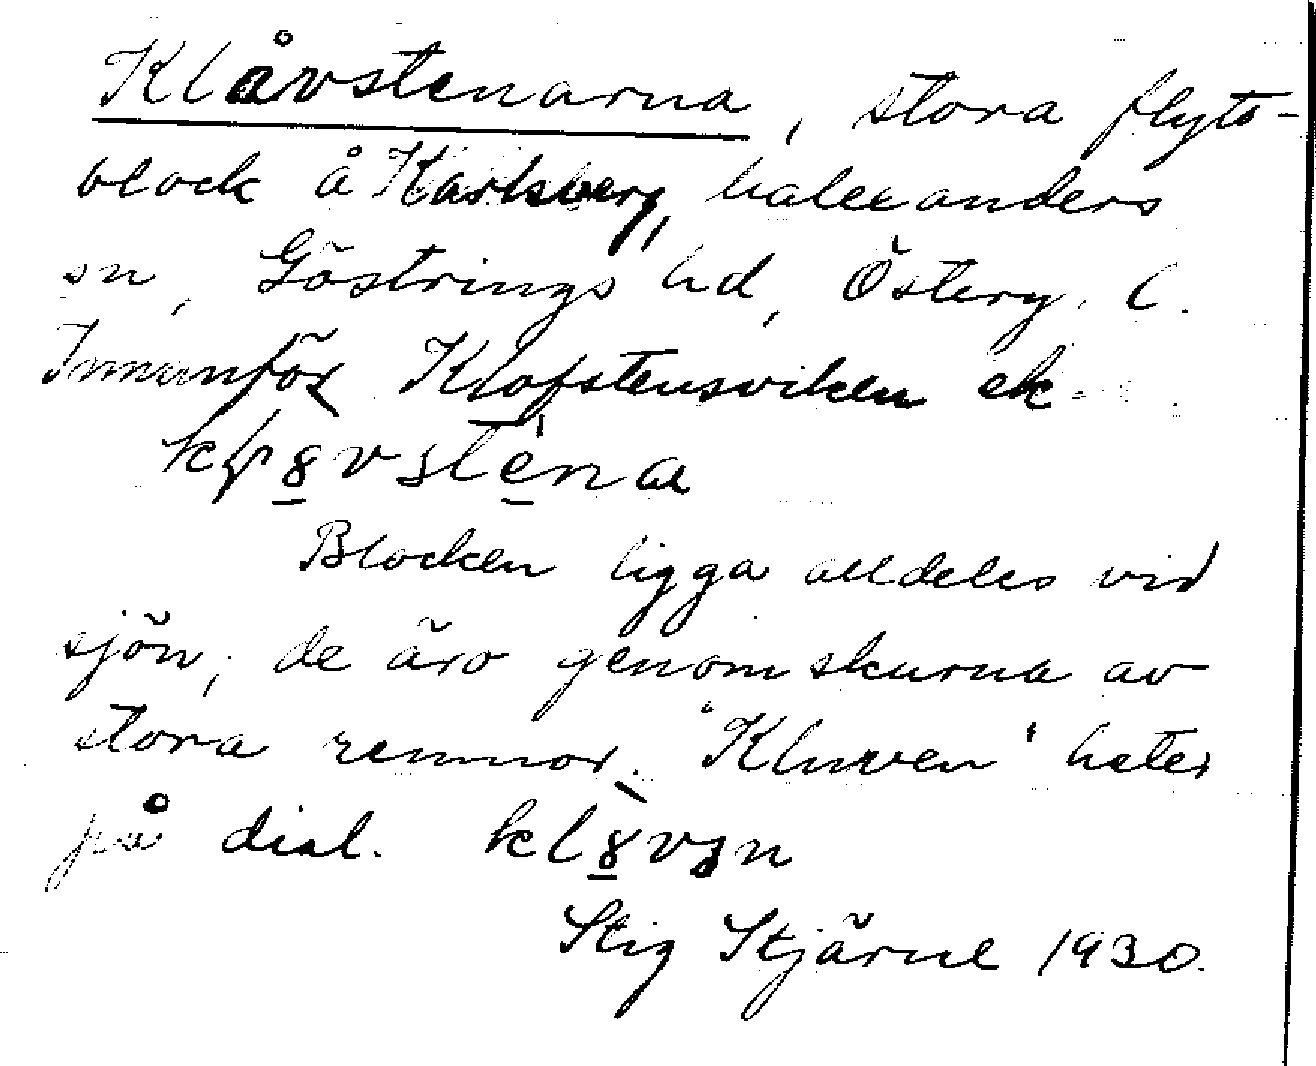 Klåvstenarna, stora flytt-
block å Karlsberg, Walexanders
sn, Göstrings hd, Österg. l.
Innanför Klofstensviken ek
Blocken ligga alldeles vid
sjön; de äro genomskurna av
stora remnor. "Kluven" heter
på dial. klȣvən
Stig Stjärne 1930.